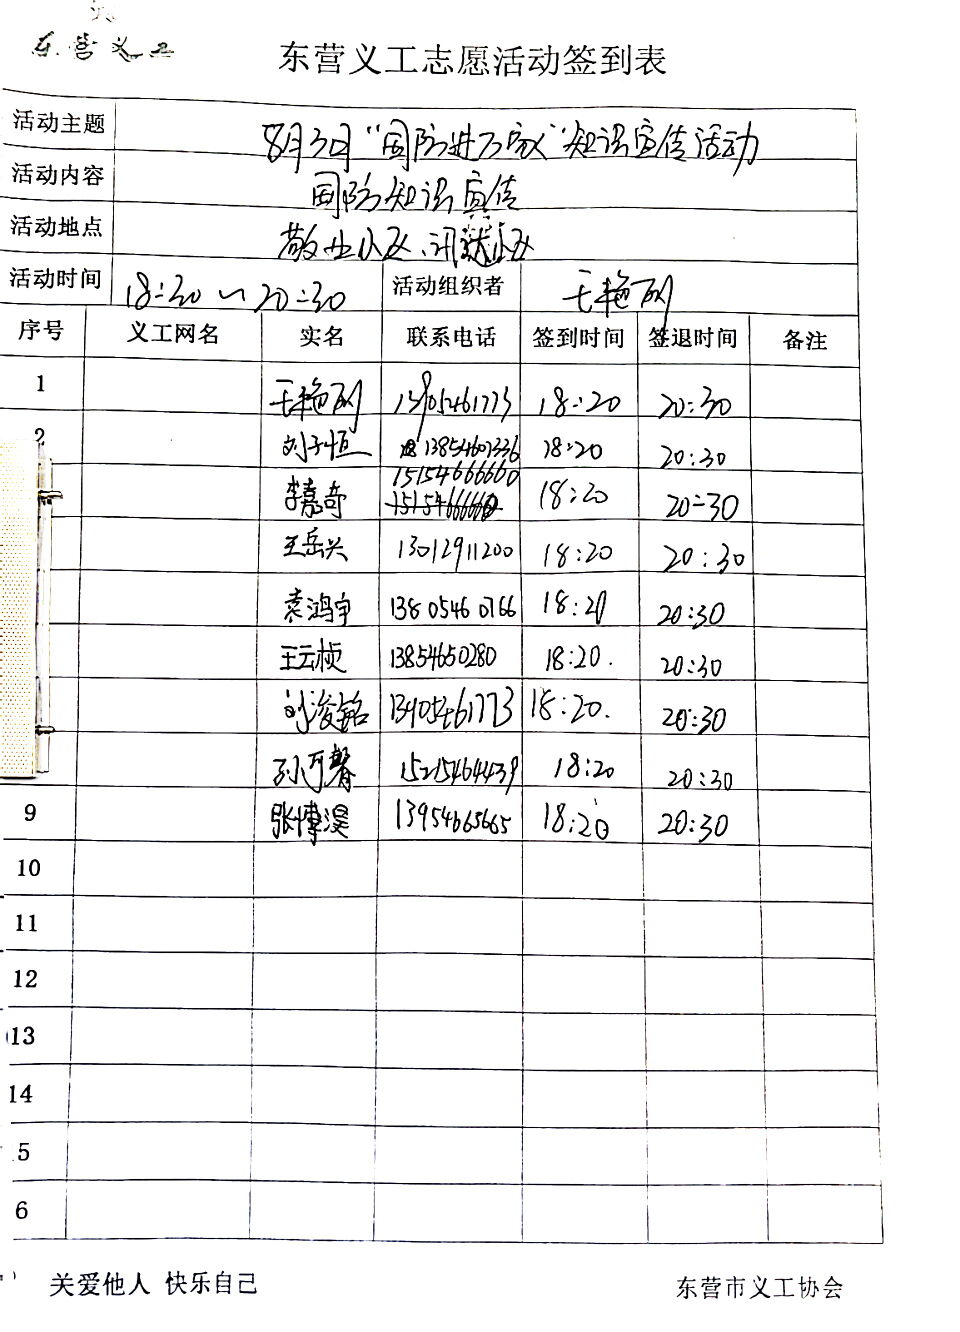 东营义工
东营义工志愿活动签到表
活动主题 8月30日“国防进万家”知识宣传活动
活动内容 国防知识宣传
活动地点 敬业小区、讯达小区
活动时间 18:30~20:30 活动组织者 王艳
序号 义工网名 实名 联系电话 签到时间 签退时间 备注
1 王艳 18:20 20:30
2 刘子恒 13854601336 18:20 20:30
李嘉奇 15154666660 18:20 20:30
王岳兴 13012911200 18:20 20:30
袁鸿宇 13805460766 18:20 20:30
王云桢 13854650280 18:20. 20:30
刘浚铭 13905461773 18:20. 20:30
孙可馨 15215464439 18:20 20:30
9 张博淏 13954665665 18:20 20:30
10
11
12
13
14
5
6
关爱他人 快乐自己 东营市义工协会